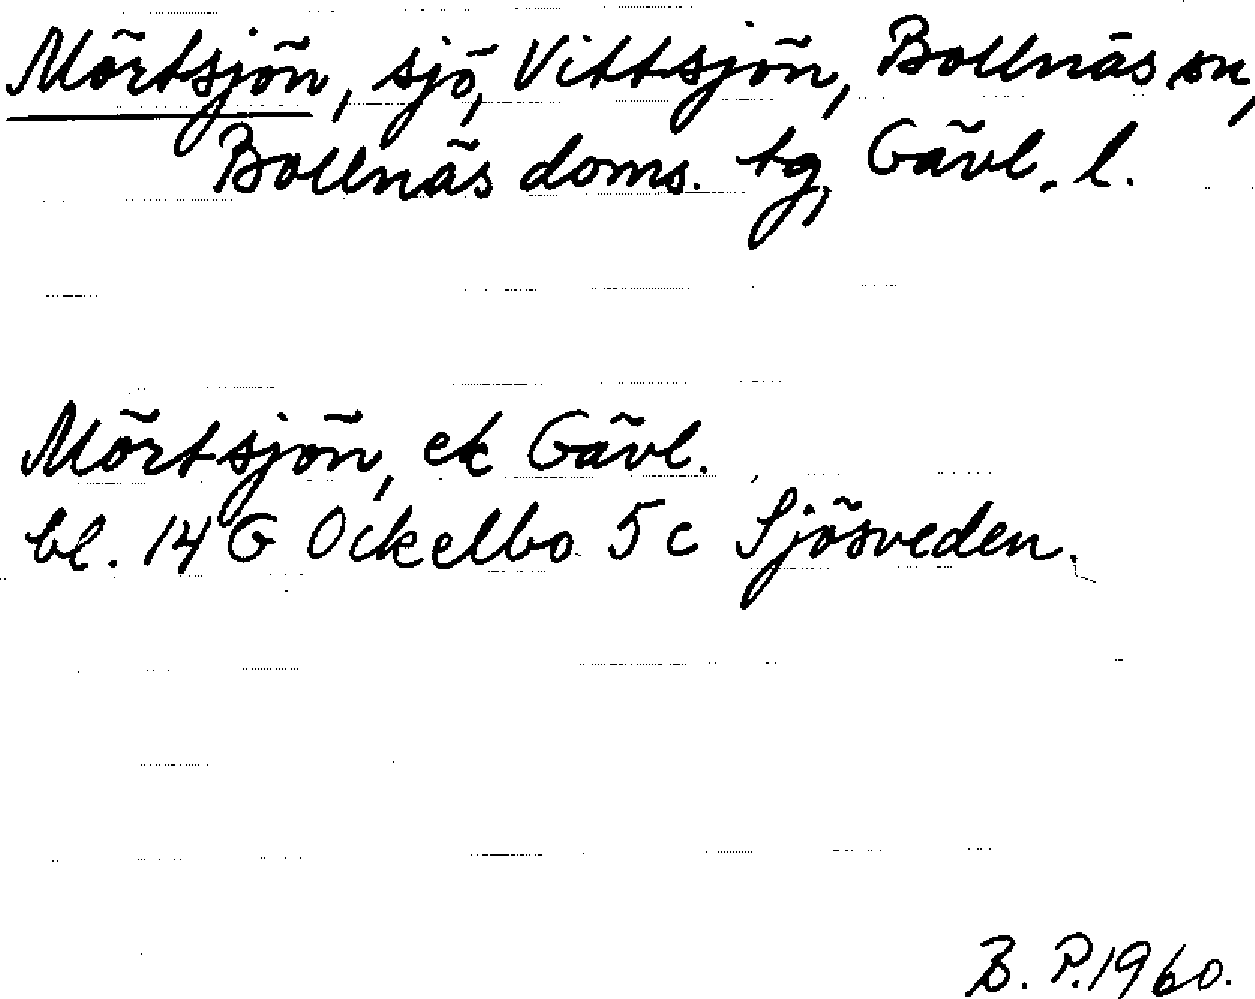 Mörtsjön, sjö, Vittsjön, Bollnäs sn,
Bollnäs doms. tg, Gävl. l.
Mörtsjön, ek Gävl.
bl. 14 G Ockelbo 5 c Sjösveden.
B. P. 1960.